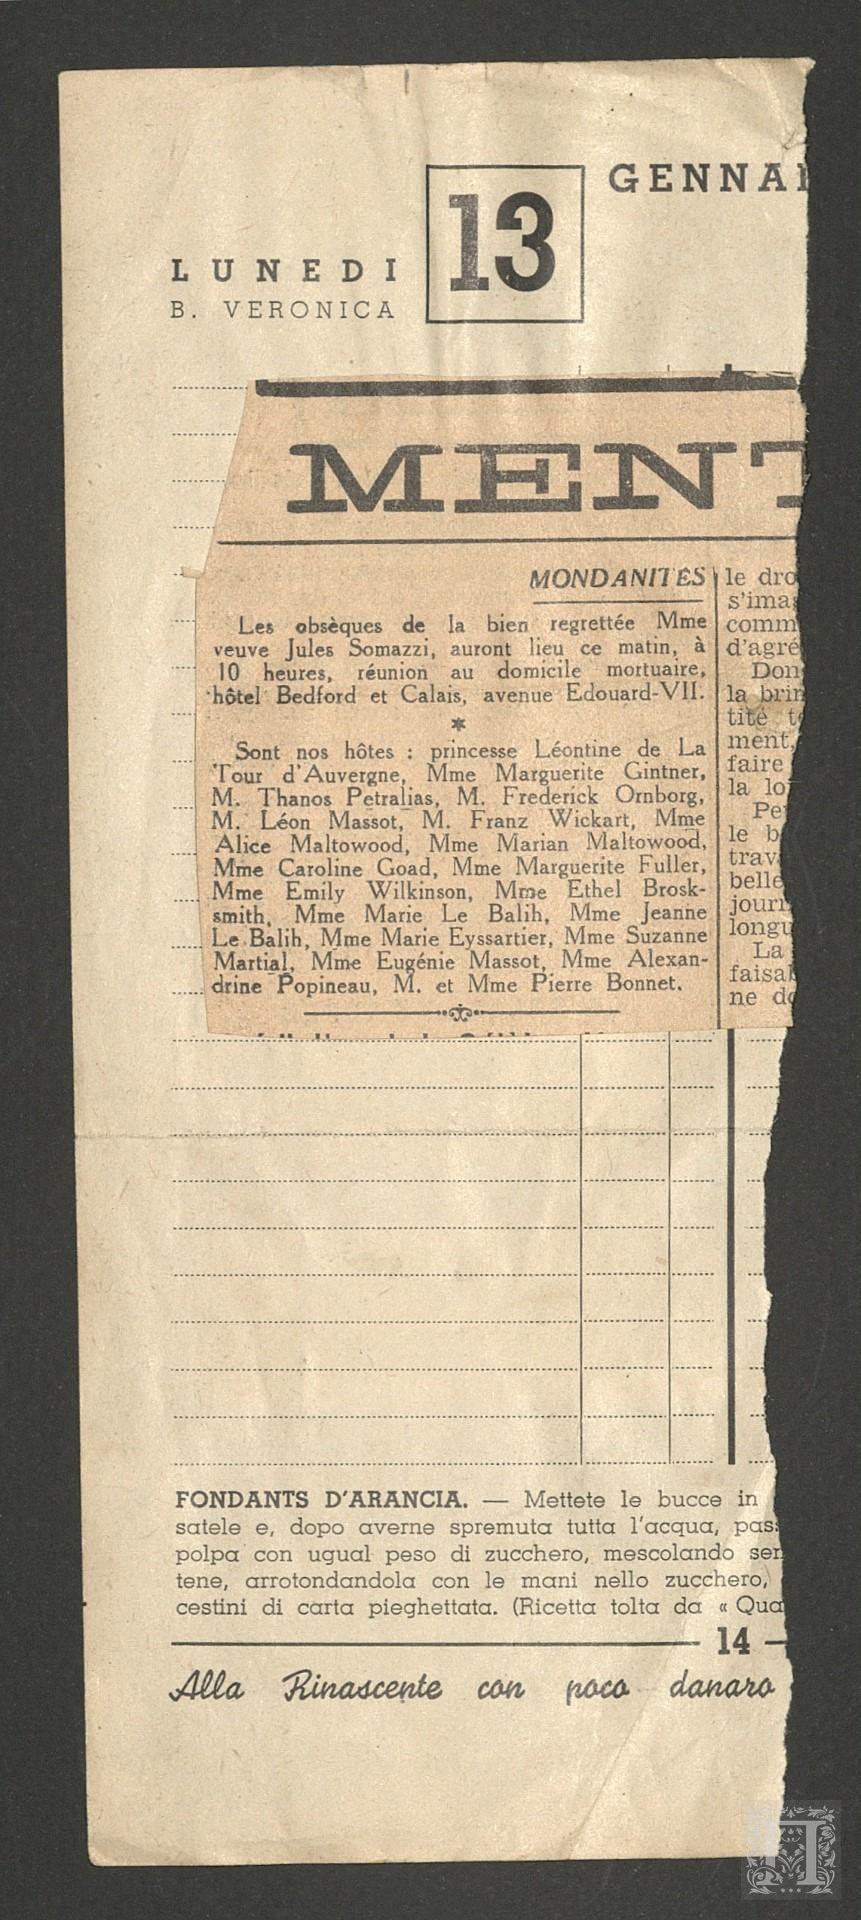 GENNAI
13
LUNEDI
B. VERONICA
MENT
MONDANITES
Les obsèques de la bien regrettée Mme
veuve Jules Somazzi, auront lieu ce matin, à
10 heures, réunion au domicile mortuaire,
hôtel Bedford et Calais, avenue Edouard-VII.
*
Sont nos hôtes : princesse Léontine de La
Tour d'Auvergne, Mme Marguerite Gintner,
M. Thanos Petralias, M. Frederick Ornborg,
M. Léon Massot, M. Franz Wickart, Mme
Alice Maltowood, Mme Marian Maltowood,
Mme Caroline Goad, Mme Marguerite Fuller,
Mme Emily Wilkinson, Mme Ethel Brosk-
smith, Mme Marie Le Balih, Mme Jeanne
Le Balih, Mme Marie Eyssartier, Mme Suzanne
Martial, Mme Eugénie Massot, Mme Alexan-
drine Popineau, M. et Mme Pierre Bonnet.
le dro
s'imag
comm
d'agré
Don
la brin
tité t
ment,
faire
la lo
Pe
le b
trav
belle
journ
longu
La
faisa
ne d
FONDANTS D'ARANCIA. — Mettete le bucce in
satele e, dopo averne spremuta tutta l'acqua, pas
polpa con ugual peso di zucchero, mescolando sen
tene, arrotondandola con le mani nello zucchero,
cestini di carta pieghettata. (Ricetta tolta da « Qua
14
Alla Rinascente con poco danaro